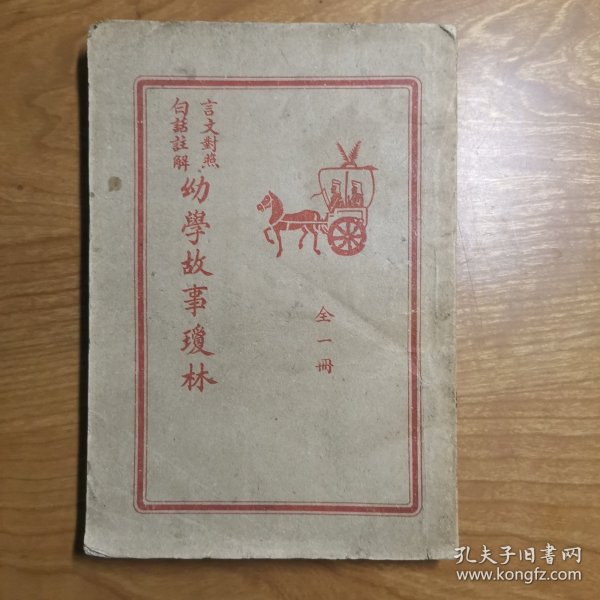 言文對照
白話註解
幼學故事瓊林
全一冊
孔夫子旧书网
www.kongfz.com